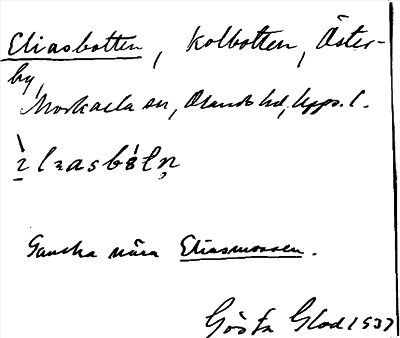 Eliasbotten, Kolbotten, Öster-
by,
Morkarla sn, Olands hd, Upps. l.
Ganska nära Eliasmossen.
Gösta Glad 1937